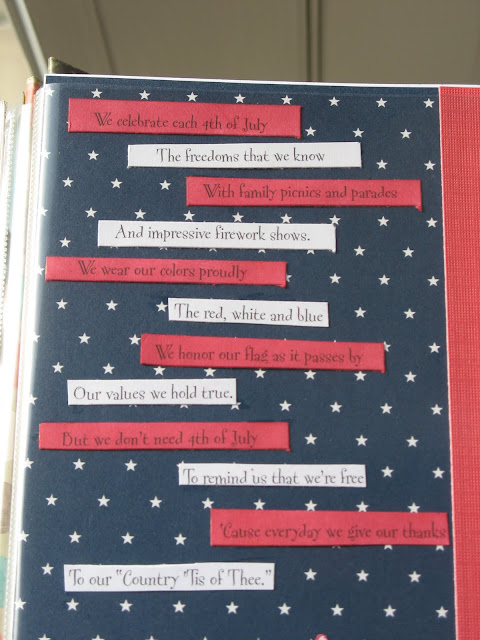 We celebrate each 4th of July
The freedoms that we know
With family picnics and parades
And impressive firework shows.
We wear our colors proudly
The red, white and blue
We honor our flag as it passes by
Our values we hold true.
But we don't need 4th of July
To remind us that we're free
'Cause everyday we give our thanks
To our "Country 'Tis of Thee."